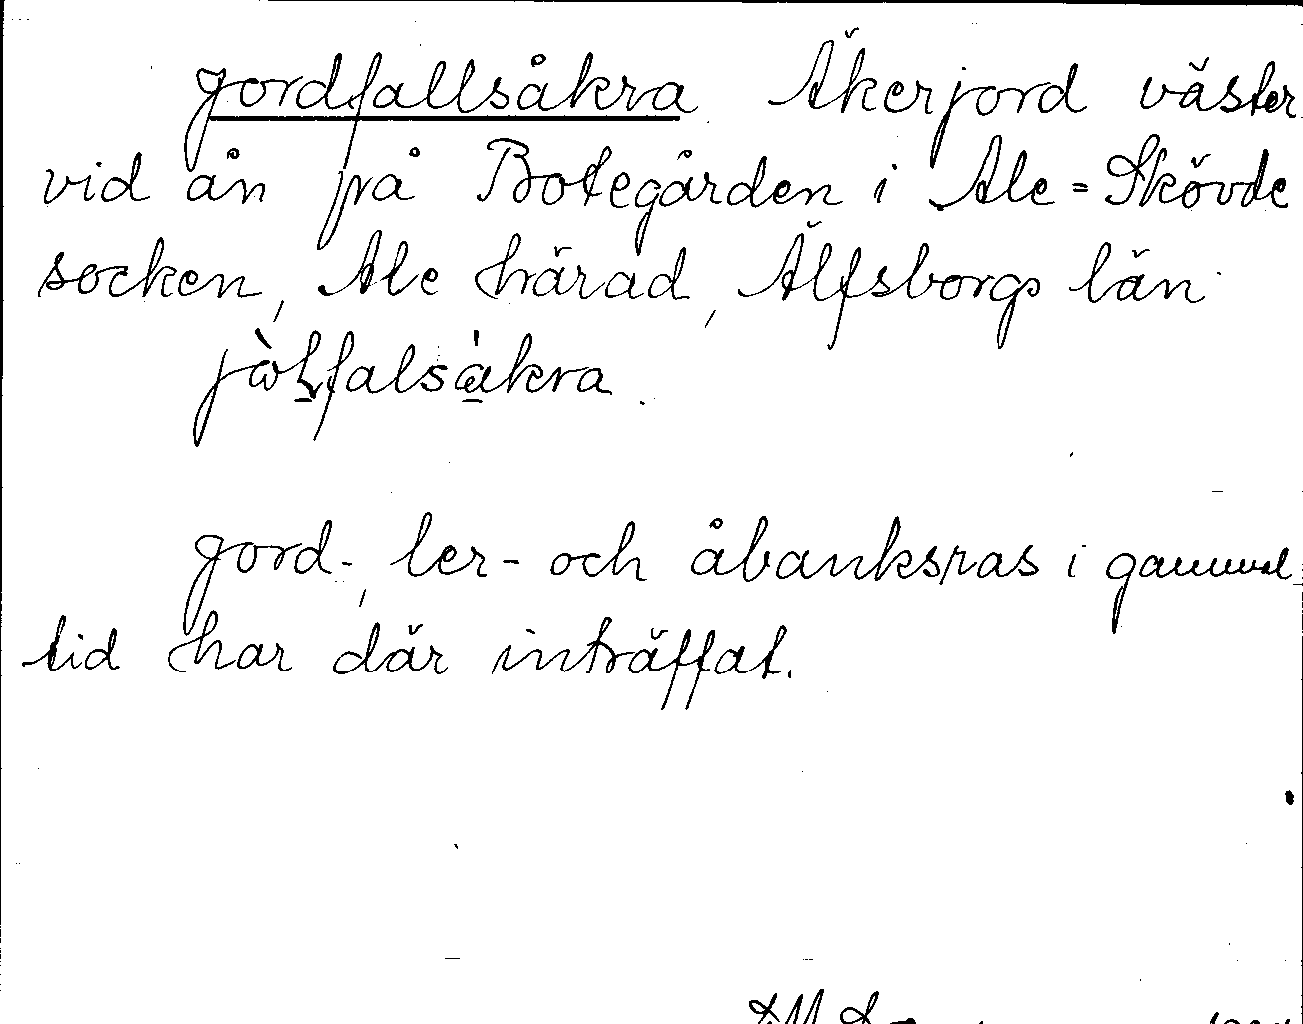 Jordfallsåkra Åkerjord väster
vid ån på Botegården i Ale=Skövde
socken, Ale härad, Älfsborgs län
jòꞎfalsàkra.
Jord-, ler- och åbanksras i gammal
tid har där inträffat.